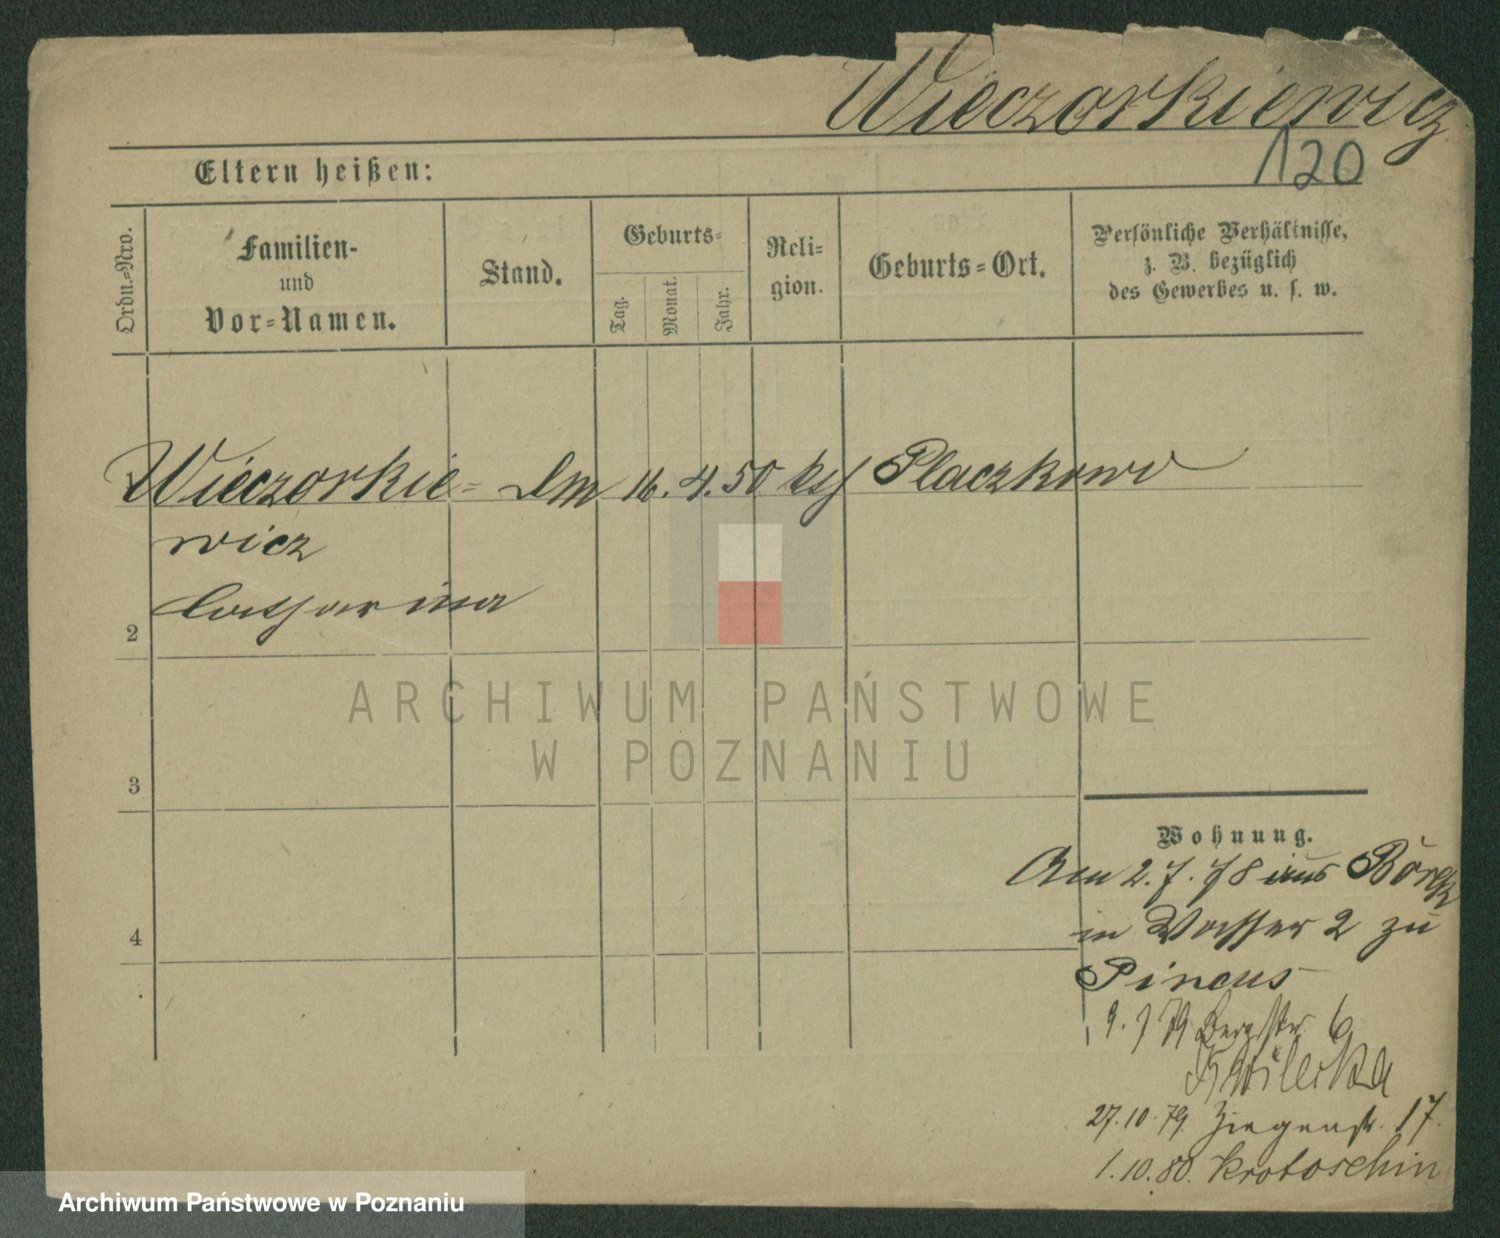 Wieczorkiewicz
120
Eltern heißen:
Ordn.=Nro.
Familien-
und
Vor=Namen.
Stand.
Geburts=
Tag.
Monat.
Jahr.
Reli=
gion.
Geburts=Ort.
Persönliche Verhältnisse,
z. B. bezüglich
des Gewerbes u. s. w.
Wieczorkie= 16. 4. 50 Placzkowo
wicz
Catharina
2
3
4
ARCHIWUM PAŃSTWOWE
W POZNANIU
Wohnung.
Am 2. 7. 78 aus
in Wasser 2 zu
Pincus
9. 7 79 Bergstr. 6
Kwilecka
27. 10. 79. Ziegenstr. 17.
1. 10. 80. Krotoschin
Archiwum Państwowe w Poznaniu